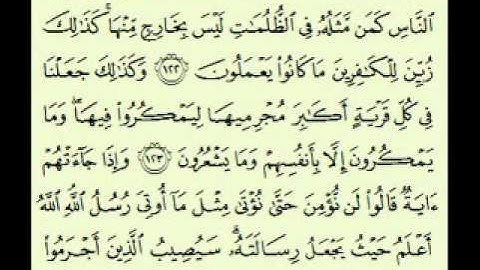 ٱلنَّاسِ كَمَن مَّثَلُهُۥ فِى ٱلظُّلُمَٰتِ لَيْسَ بِخَارِجٍ مِّنْهَا ۚ كَذَٰلِكَ
زُيِّنَ لِلْكَٰفِرِينَ مَا كَانُوا۟ يَعْمَلُونَ ١٢٢ وَكَذَٰلِكَ جَعَلْنَا
فِى كُلِّ قَرْيَةٍ أَكَٰبِرَ مُجْرِمِيهَا لِيَمْكُرُوا۟ فِيهَا ۖ وَمَا
يَمْكُرُونَ إِلَّا بِأَنفُسِهِمْ وَمَا يَشْعُرُونَ ١٢٣ وَإِذَا جَآءَتْهُمْ
ءَايَةٌ قَالُوا۟ لَن نُّؤْمِنَ حَتَّىٰ نُؤْتَىٰ مِثْلَ مَآ أُوتِىَ رُسُلُ ٱللَّهِ ۘ ٱللَّهُ
أَعْلَمُ حَيْثُ يَجْعَلُ رِسَالَتَهُۥ ۗ سَيُصِيبُ ٱلَّذِينَ أَجْرَمُوا۟